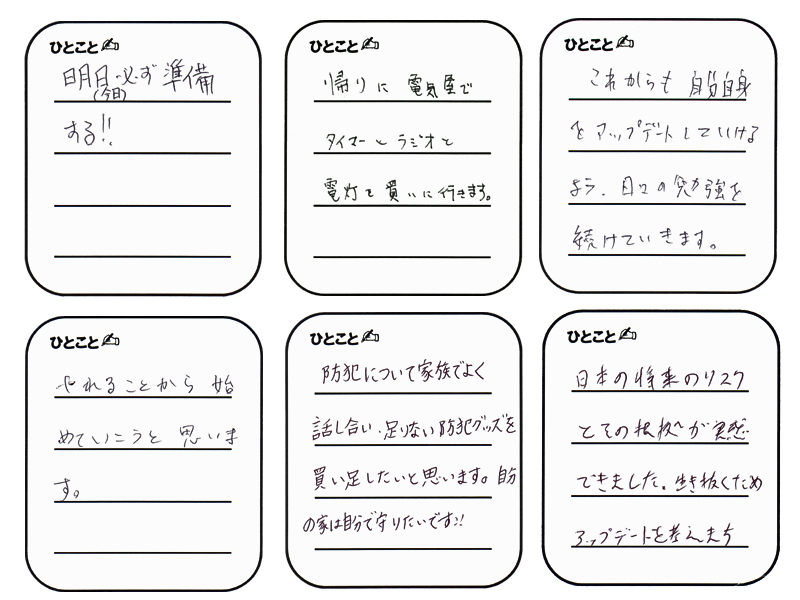 ひとこと
明日必ず準備
(今日)
する!!
ひとこと
帰りに 電気屋で
タイマーとラジオと
電灯を買いに行きます。
ひとこと
これからも 自分自身
をアップデートしていける
よう、日々の勉強を
続けていきます。
ひとこと
やれることから 始
めていこうと 思いま
す。
ひとこと
防犯について家族でよく
話し合い、足りない防犯グッズを
買い足したいと思います。自分
の家は自分で守りたいです!!
ひとこと
日本の将来のリスク
とその
が実感
できました。生き抜くため
アップデートを考えます